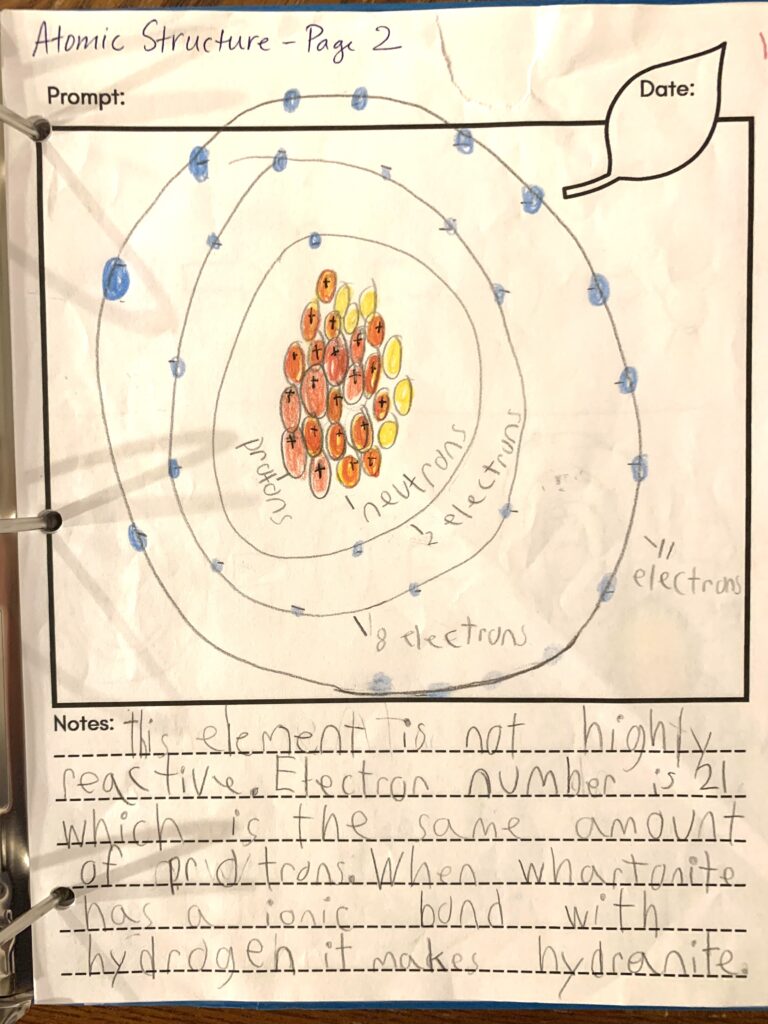 Atomic Structure - Page 2
Prompt:
Date:
protons
neutrons
2 electrons
11
electrons
8 electrons
Notes: this element is not highly
reactive. Electron number is 21
which is the same amount
of protrons. When whartonite
has a ionic bond with
hydrogen it makes hydranite.